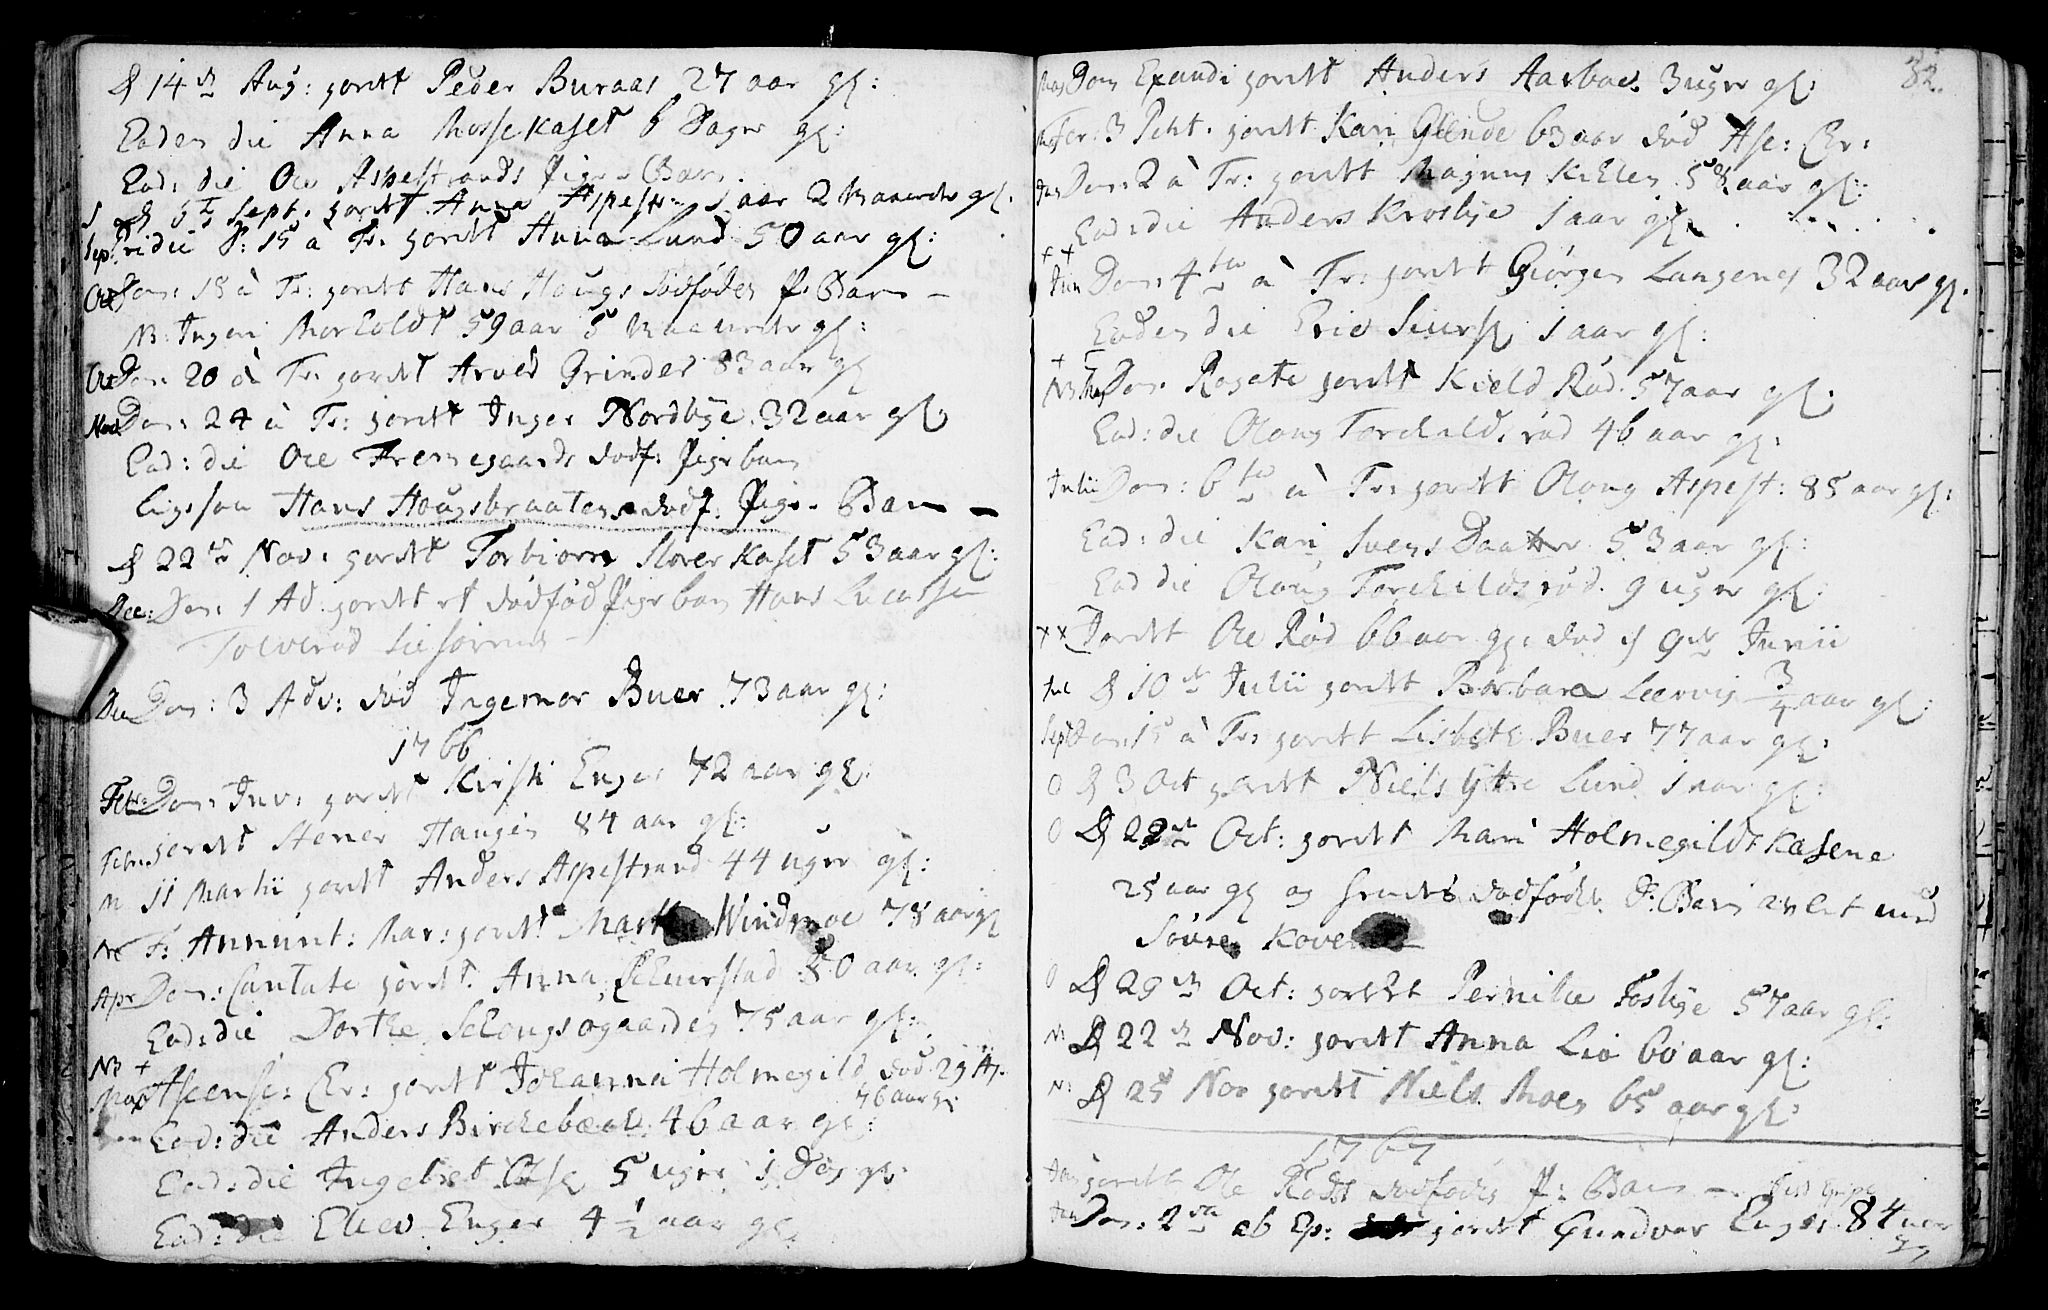 D 14 de Aug: jordet Peder Buraas 27 aar gl:
Eodem die Anna Mossekaset 6 Dager gl:
Eod: die Ole Aspestrands Pige-Barn.
S D 6te Sept. jordet Anna Aspestr: 1 aar 2 Maaneder gl.
Sept Fridie P: 15 à Tr. jordet Anna Lund 50 aar gl:
Oct Dom: 18 à Tr: jordet Hans Hougs dødføden P. Barn –
NB. Ingeri 59 aar 5 Maaneder gl:
Oct Dom: 20 à Tr. jordet Arved Grinder 83 aar gl
Nov. Dom: 24 à Tr: jordet Inger Nordbye 32 aar gl.
Eod: die Ole Fremegaards dødf: Pigebarn
Ligesaa Hans Hougsbraatens dødf: Pige-Barn –
D 22de Nov: jordet Torbiorn 53 aar gl:
Dec: Dom: 1 Ad. jordet et dødfød Pigebarn Hans
Tolverød
Dec Dom: 3 Adv: død Ingemor Buer 73 aar gl:
1766
Febr: Dom: Inv: jordet Kirsti Enger 72 aar gl:
Febr: jordet Stener Haugen 84 aar gl:
M 11 Martii jordet Anders Aspestrand 44 uger gl:
F: Annunt: Mar: jordet Windmoe 78 aar gl
Apr Dom: Cantate jordet Anna 80 aar gl:
Eod: die Dorthe 75 aar gl:
NB +
May Ascens: Chr: jordet Johanna Holmegild død 29 Ap.
76 aar gl:
Eod: die Anders Birchebæck 46 aar gl:
Eod: die Ingebret 5 uger 1 Dag gl:
Eod: die Elias Enger 4 1/2 aar gl.
82.
May Dom Exaudi jordet Anders Aarbo 3 uger gl:
Fer: 3 Pent. jordet Kari Glende 63 aar død Asc: Chr:
Jun Dom: 2 à Tr: jordet Magnus Kilen 58 aar gl:
Eod: die Anders Krosbye 1 aar gl.
+ +
Jun Dom: 4 ta à Tr: jordet Giörgen Langenes 32 aar gl.
Eodem die Eric 1 aar gl:
+
NB May Dom. Rogate jordet Kield Rød 57 aar gl.
Eod: die Oloug Torchildsrød 46 aar gl:
Julii Dom: 6 ta à Tr: jordet Oloug Aspest: 85 aar gl:
Eod: die Kari Svens Daatter 53 aar gl:
Eod die Oloug Torchildsrød 9 uger gl:
x x Jordet Ole Rød 66 aar gl: død d 9de Junii
Jul D 10de Julii jordet Barbara 3/4 aar gl:
Sept Dom: 15 à Tr: jordet Lisbeth Buer 77 aar gl:
O D 3 Oct jordet Niels Lund 1 aar gl:
O D 22de Oct: jordet Mari Holmegildt Kasene
25 aar gl og hendes dødfødde D: Barn avlet med
O D 29de Oct: jordet Pernille Fosbye 57 aar gl:
N: D 22de Nov: jordet Anna Lie 60 aar gl:
N: D 25 Nov jordet Niels Moen 65 aar gl:
1767
Jan jordet Ole Røds dødfødes P: Barn –
Jan Dom: 2da ab Ep: jordet Gundvor Enger 84 aar